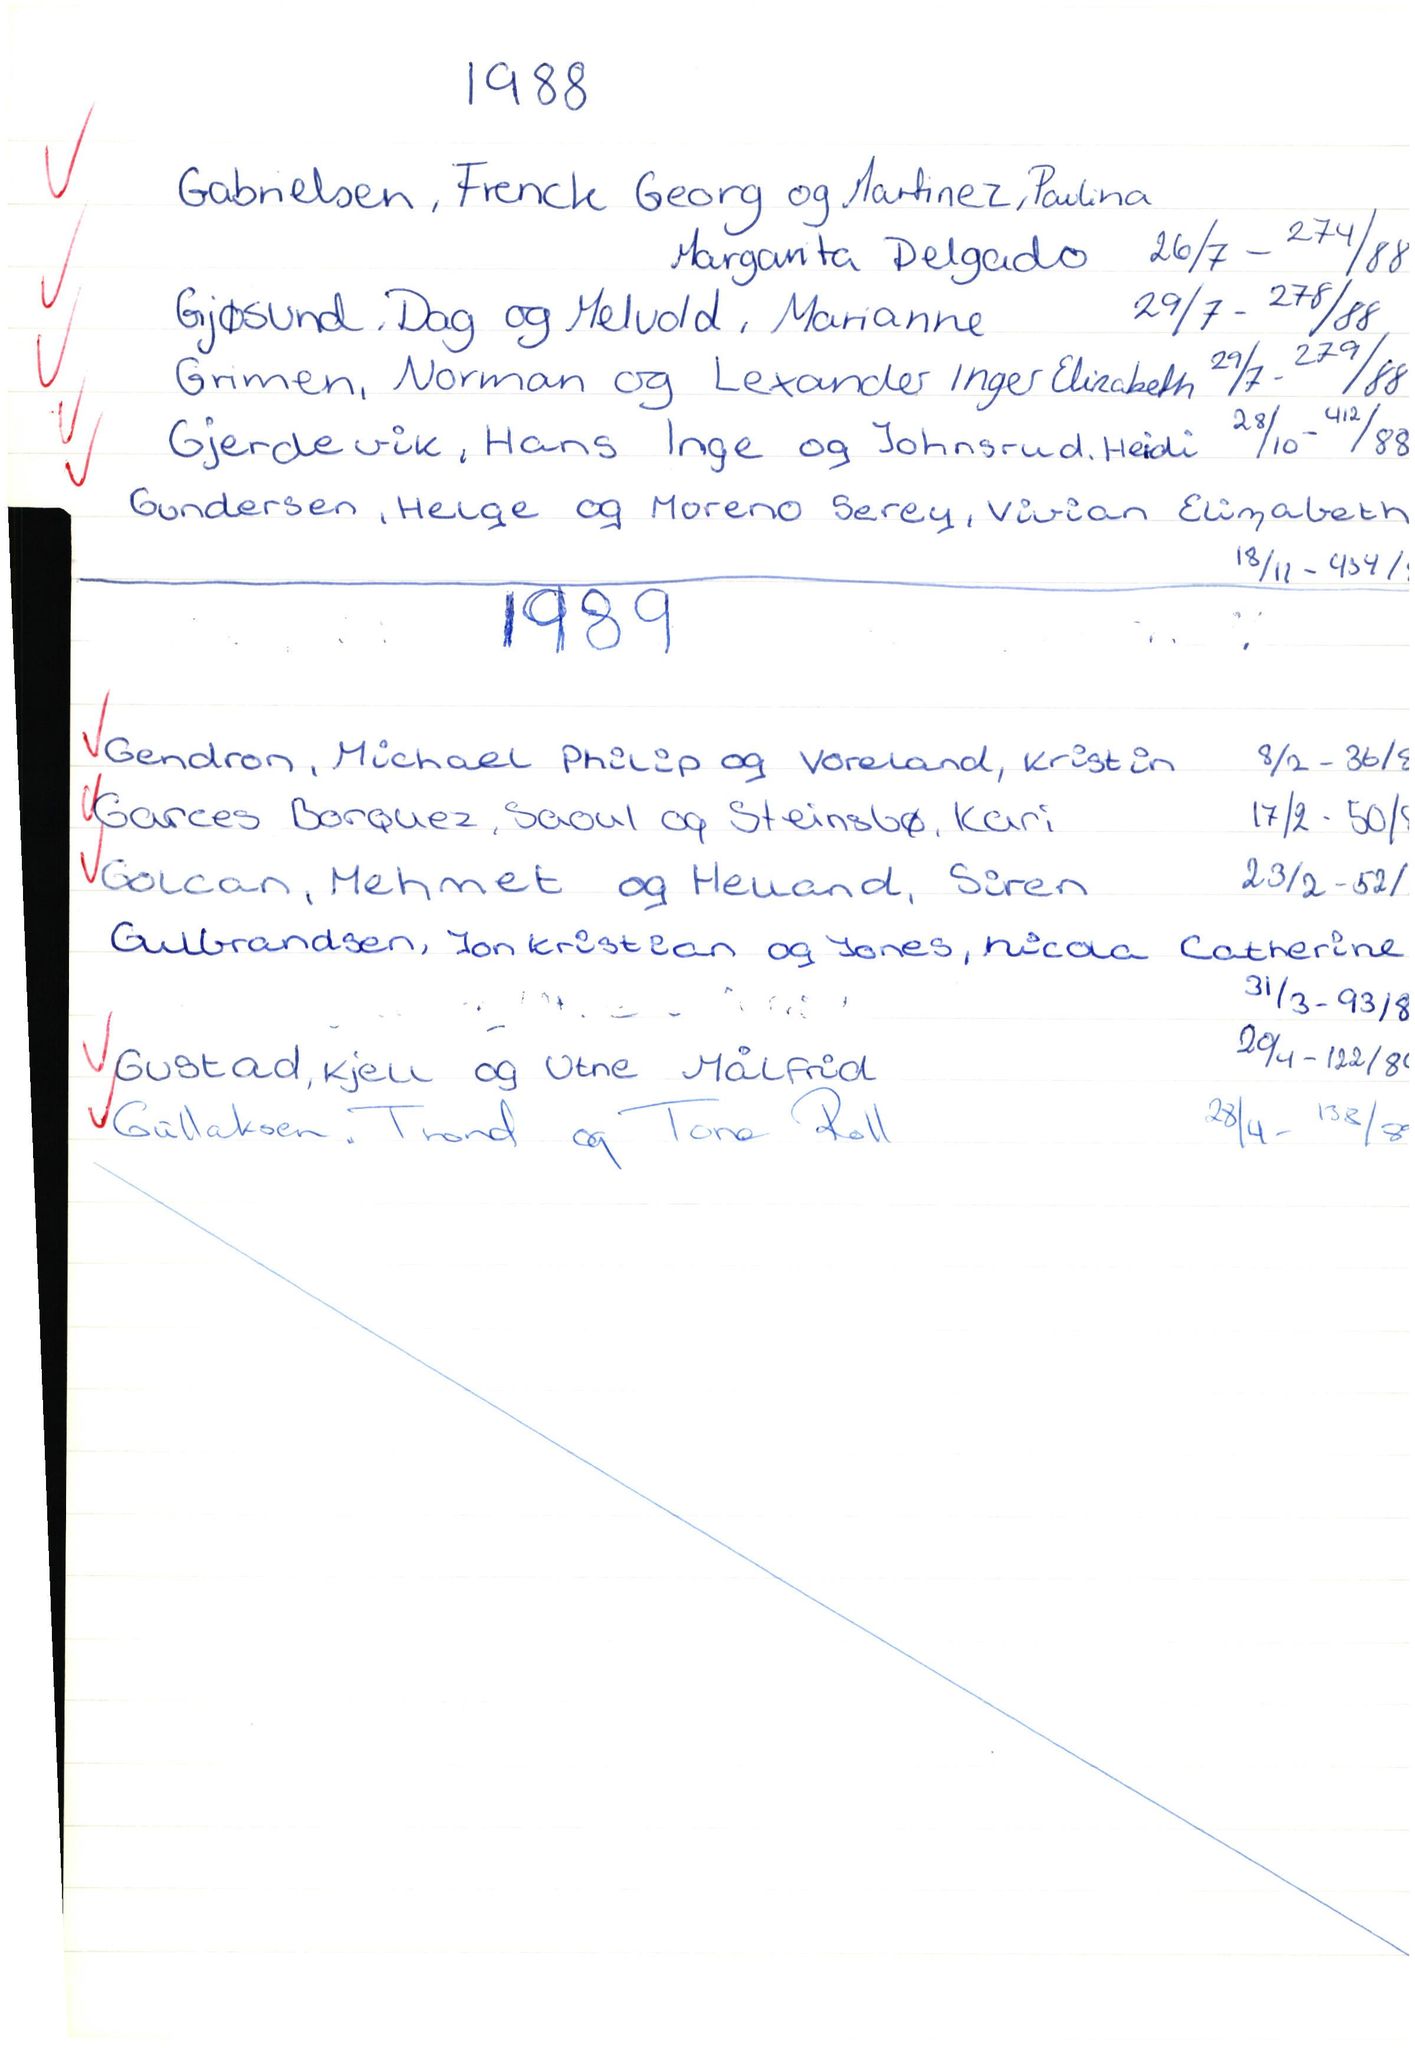 1988
Gabrielsen, Frenck Georg og Martinez, Paulina
Margarita Delgado 26/7 - 274/88
Gjøsund, Dag og Melvold, Marianne 29/7 - 278/88
Grimen, Norman og Lexander Inger Elizabeth 29/7 - 279/88
Gjerdevik, Hans Inge og Johnsrud, Heidi 28/10 - 412/88
Gundersen, Helge og Moreno Serey, Vivian Elizabeth
18/11 - 434/
1989
Gendron, Michael Philip og Voreland, Kristin 8/2 - 36/8
Garces Borquez, Saoul og Steinsbø, Kari 17/2 - 50/8
Golcan, Mehmet og Helland, Siren 23/2 - 52/
Gulbrandsen, Jon Kristian og Jones, Nicola Catherine
31/3 - 93/8
Gustad, Kjell og Utne Målfrid 20/4 - 122/8
Gullaksen, Trond og Tone Roll 28/4 - 138/8